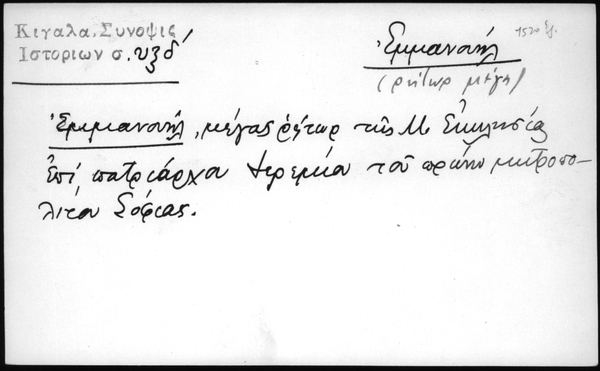 Κιγαλα, Συνοψις
Ιστοριων σ. υξδ΄
Ἐμμανουὴλ
1520 ἑξ.
(ρήτωρ μέγας)
Ἐμμανουὴλ, μέγας ῥήτωρ τῆς Μ. Ἐκκλησίας
ἐπὶ πατριάρχου Ἱερεμίου τοῦ πρώην μητροπο-
λίτου Σόφιας.